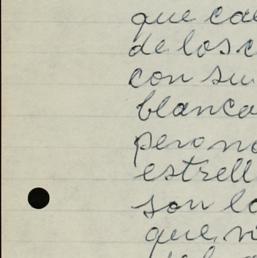 que cae
de los c
con su
blanca
pero no
estrell
son lo
que, n